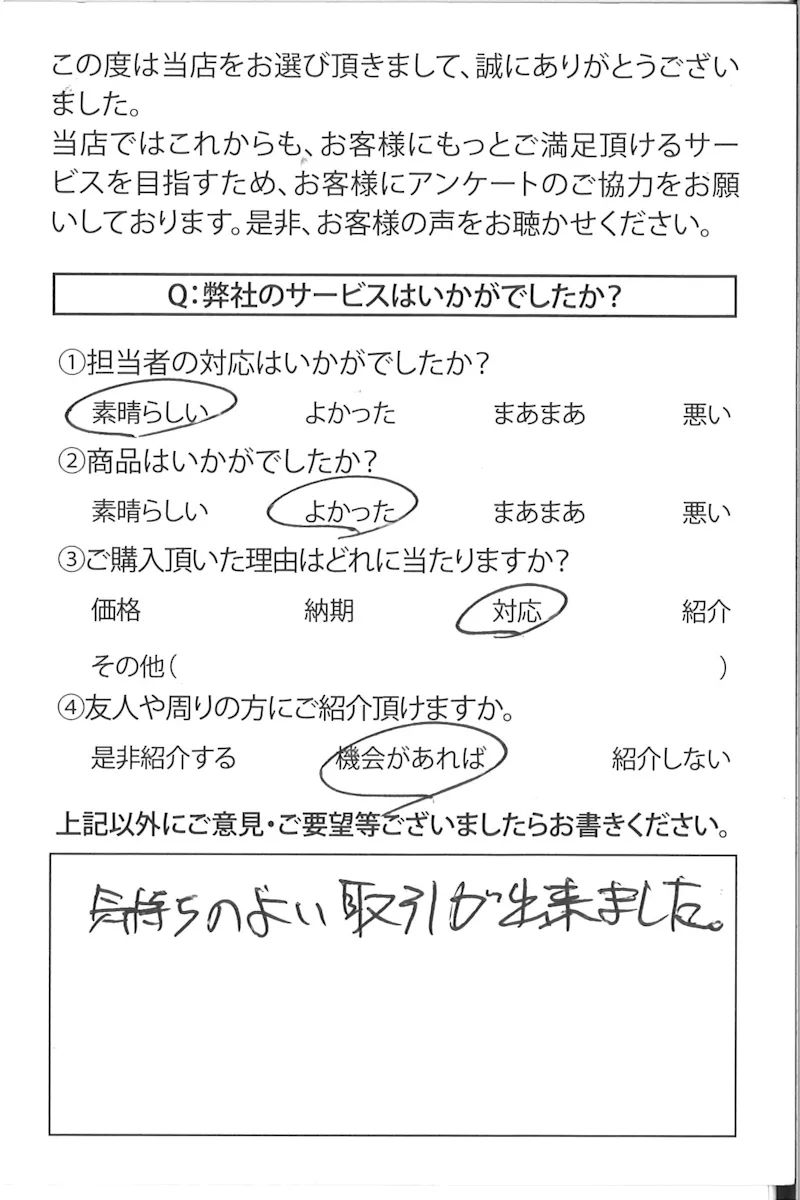 この度は当店をお選び頂きまして、誠にありがとうござい
ました。
当店ではこれからも、お客様にもっとご満足頂けるサー
ビスを目指すため、お客様にアンケートのご協力をお願
いしております。是非、お客様の声をお聴かせください。
Q：弊社のサービスはいかがでしたか？
①担当者の対応はいかがでしたか？
素晴らしい よかった まあまあ 悪い
②商品はいかがでしたか？
素晴らしい よかった まあまあ 悪い
③ご購入頂いた理由はどれに当たりますか？
価格 納期 対応 紹介
その他（ ）
④友人や周りの方にご紹介頂けますか。
是非紹介する 機会があれば 紹介しない
上記以外にご意見・ご要望等ございましたらお書きください。
気持ちのよい取引が出来ました。